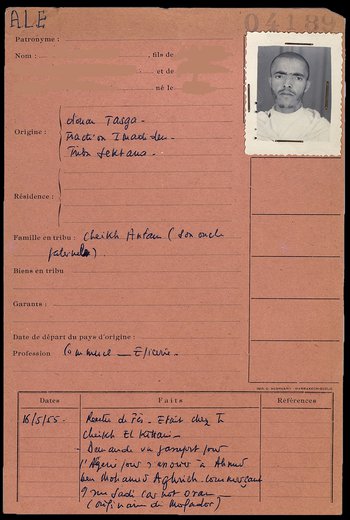 ALE
04189
Patronyme :
Nom : , fils de
et de
né le
douar Tasga -
Origine : Fraction Imadiden -
Tribu Sektana -
Résidence :
Famille en tribu : Cheikh (son oncle
paternel).
Biens en tribu
Garants :
Date de départ du pays d'origine :
Profession Commerce — Epicerie -
Dates Faits Références
16/5/55 - Rentre de Fès - Etait chez le
cheikh El Kittani -
- Demande un passeport pour
l'Algérie pour s'associer à Ahmed
ben Mohamed commerçant
9 rue Sadi carnot oran -
(originaire de Mogador)